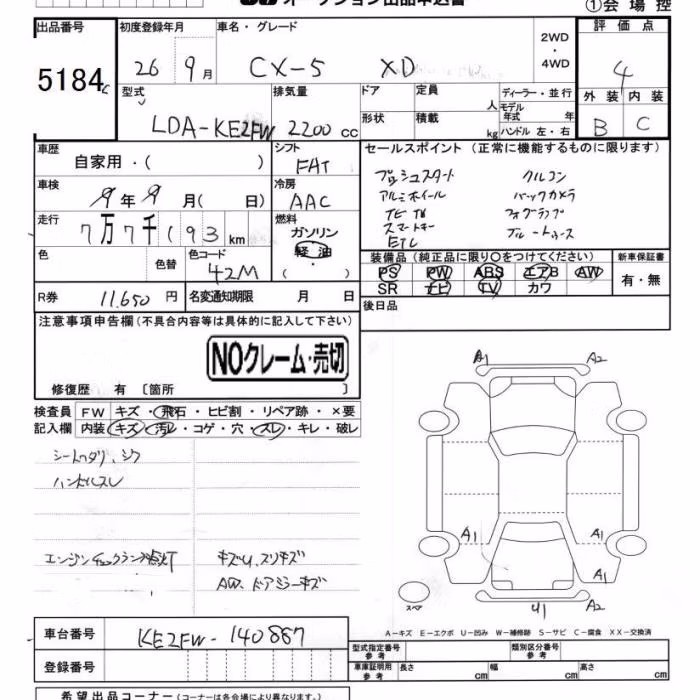 オークション出品申込書
①会場控
出品番号
5184
初度登録年月
26 9月
車名・グレード
CX-5 XD
2WD
・
4WD
評価点
4
外装 内装
B C
型式
LDA-KE2FW
排気量
2200cc
ドア
定員
人
形状
積載
kg
ディーラー・並行
モデル年式 年式
ハンドル 左・右
車歴
自家用・( )
シフト
FAT
車検
9年9月( 日)
冷房
AAC
走行
7万7千193km
燃料
ガソリン
軽油
( )
色
色替
色コード
42M
R券
11,650円
名変通知期限 月 日
セールスポイント(正常に機能するものに限ります)
プッシュスタート クルコン
アルミホイール バックカメラ
フォグランプ
スマートキー ブルートゥース
ETC
装備品(純正品に限り○をつけてください)
PS PW ABS エアB AW
SR ナビ TV カワ
新車保証書
有・無
後日品
注意事項申告欄(不具合内容等は具体的に記入して下さい)
NOクレーム・売切
修復歴 有〔箇所 〕
検査員 FW キズ・飛石・ヒビ割・リペア跡・×要
記入欄 内装 キズ・汚レ・コゲ・穴・スレ・キレ・破レ
シートヘタリ、シワ
ハンドルスレ
エンジンチェックランプ点灯
キズU、スリキズ
AW、ドアミラーキズ
A1 A2
A1 A1
A1
U1 A2
スペア
A-キズ E-エクボ U-凹み W-補修跡 S-サビ C-腐食 XX-交換済
車台番号
KE2FW-140887
登録番号
型式指定番号 参考
類別区分番号 参考
車庫証明用 参考
長さ cm
幅 cm
高さ cm
希望出品コーナー(コーナーは各会場により異なります)